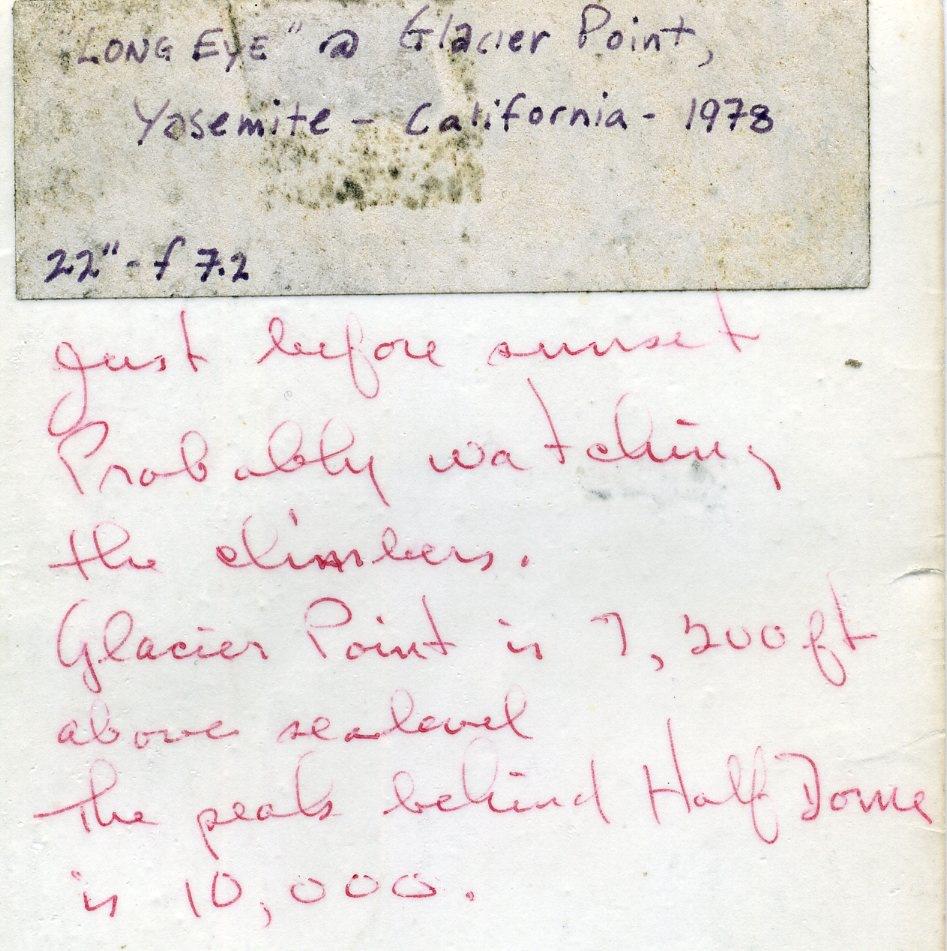 "LONG EYE" @ Glacier Point,
Yasemite - California - 1978
22" - f 7.2
Just before sunset
Probably watching
the climbers.
Glacier Point is 7,200 ft
above sealevel
the peak behind Half Dome
is 10,000.